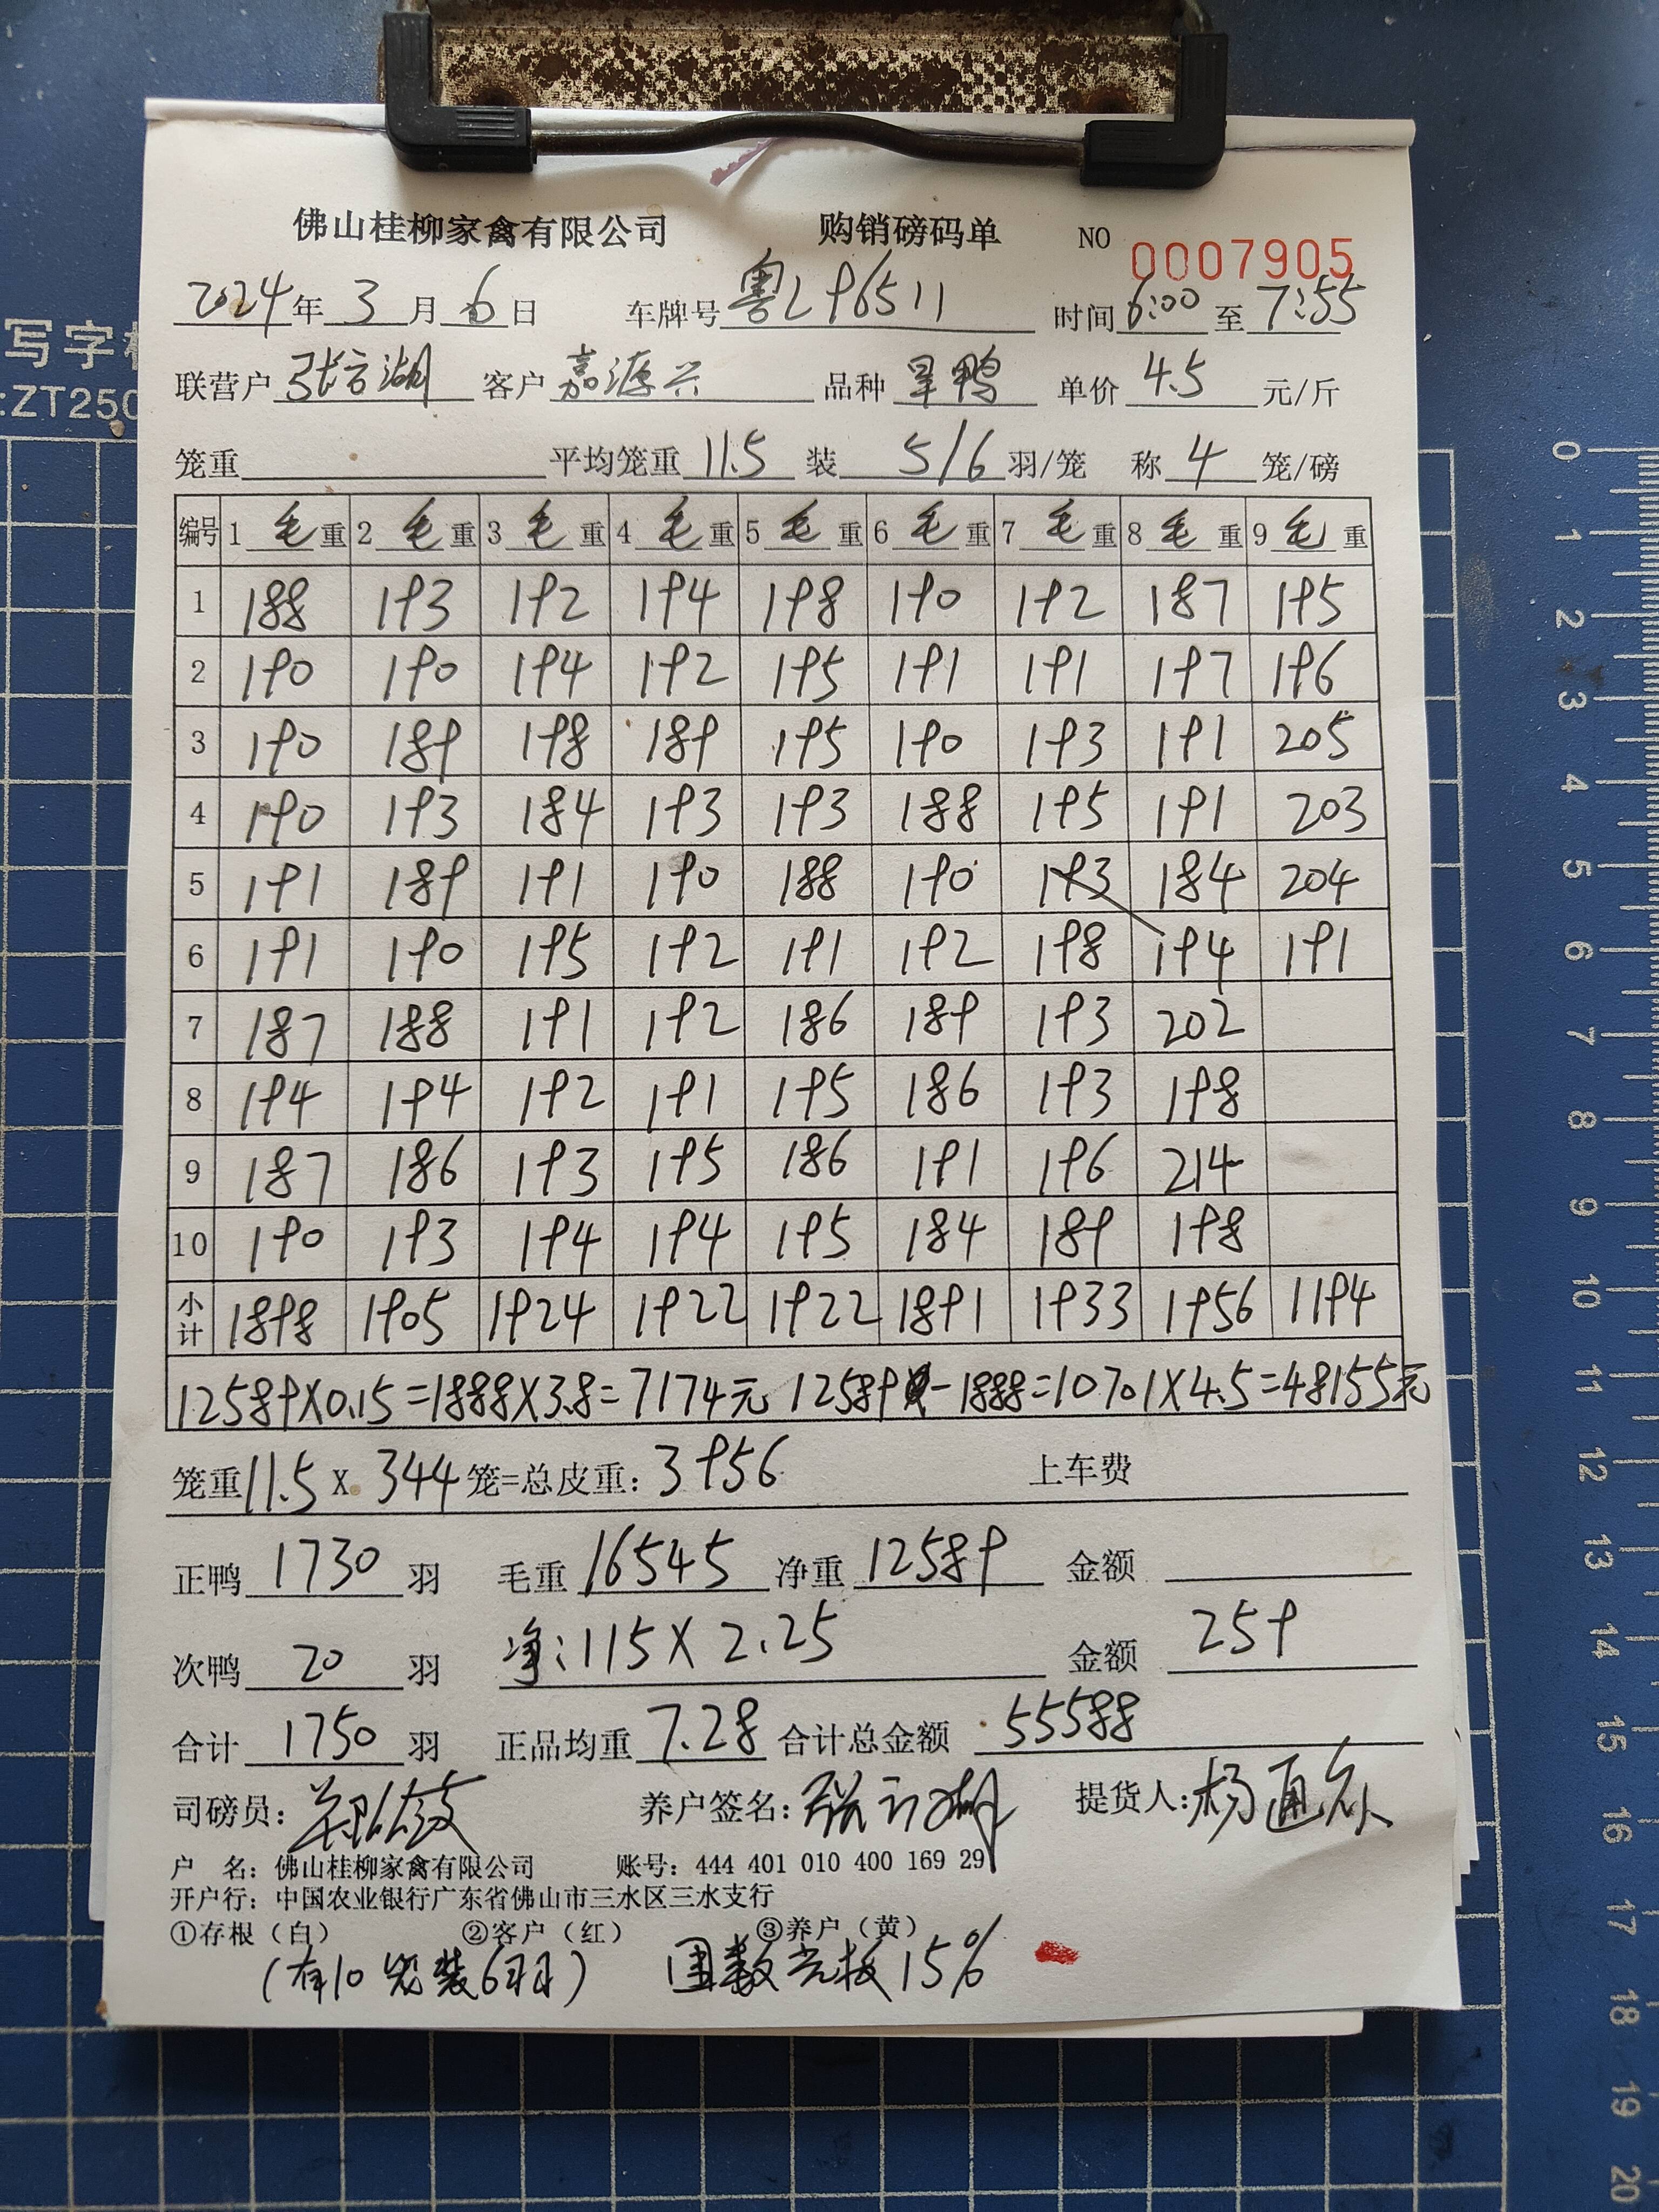 佛山桂柳家禽有限公司 购销磅码单 NO 0007905
2024年 3月 6日 车牌号 粤L96511 时间 6:00 至 7:55
联营户 客户 嘉源兴 品种 旱鸭 单价 4.5 元/斤
笼重 平均笼重 11.5 装 5/6 羽/笼 称 4 笼/磅
编号 1 毛 重 2 毛 重 3 毛 重 4 毛 重 5 毛 重 6 毛 重 7 毛 重 8 毛 重 9 毛 重
1 188 193 192 194 198 190 192 187 195
2 190 190 194 192 195 191 191 197 196
3 190 189 198 189 195 190 193 191 205
4 190 193 184 193 193 188 195 191 203
5 191 189 191 190 188 190 193 184 204
6 191 190 195 192 191 192 198 194 191
7 187 188 191 192 186 189 193 202
8 194 194 192 191 195 186 193 198
9 187 186 193 195 186 191 196 214
10 190 193 194 194 195 184 189 198
小计 1898 1905 1924 1922 1922 1891 1933 1956 1194
12589X0.15=1888X3.8=7174元 12589-1888=10701X4.5=48155元
笼重 11.5 X 344 笼=总皮重: 3956 上车费
正鸭 1730 羽 毛重 16545 净重 12589 金额
次鸭 20 羽 净:115X2.25 金额 259
合计 1750 羽 正品均重 7.28 合计总金额 55588
司磅员: 养户签名: 提货人: 杨通众
户 名: 佛山桂柳家禽有限公司 账号: 444 401 010 400 169 29
开户行: 中国农业银行广东省佛山市三水区三水支行
①存根（白） ②客户（红） ③养户（黄）
(有10笼装6羽) 15%